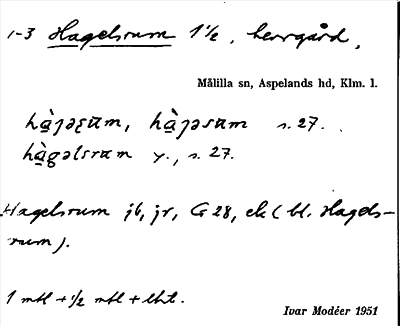 1-3 Hagelsrum 1 1/2, herrgård,
Målilla sn, Aspelands hd, Klm. l.
s. 27.
y., s. 27.
Hagelsrum jb, jr, G 28, ek (bl. Hagels-
rum).
1 mtl + 1/2 mtl + lht.
Ivar Modéer 1951